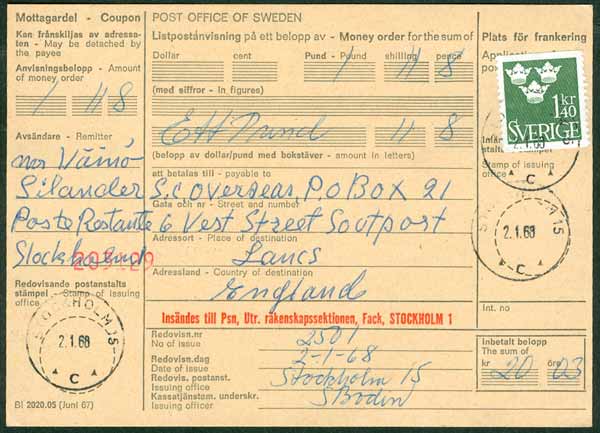 Mottagardel - Coupon
Kan frånskiljas av adressa-
ten - May be detached by
the payee
Anvisningsbelopp - Amount
of money order
1 11 8
Avsändare - Remitter
Väinö
Silander
Poste Restante
Stockholm
205:29
Redovisande postanstalts
stämpel - Stamp of issuing
office
STOCKHOLM 15
2.1.68
C
BI 2020.05 (Juni 67)
POST OFFICE OF SWEDEN
Listpostanvisning på ett belopp av - Money order for the sum of
Dollar cent Pund - Pound shilling pence
1 11 8
(med siffror - In figures)
Ett Pund 11 8
(belopp av dollar/pund med bokstäver - amount in letters)
att betalas till - payable to
S.C Overseas, P.O Box 21
Gata och nr - Street and number
6 Vest Street Soutport
Adressort - Place of destination
Lancs
Adressland - Country of destination
England
Insändes till Psn, Utr. räkenskapssektionen, Fack, STOCKHOLM 1
Redovisn.nr
No of issue
2501
Redovisn.dag
Date of issue
2-1-68
Redovis. postanst.
Issuing office
Stockholm 15
Kassatjänstem. underskr.
Issuing officer
S Bodin
Plats för frankering
1 kr
40
SVERIGE
Stamp of issuing
office
2.1.68
C
STOCKHOLM 15
2.1.68
C
Int. no
Inbetalt belopp
The sum of
kr 20 öre 03